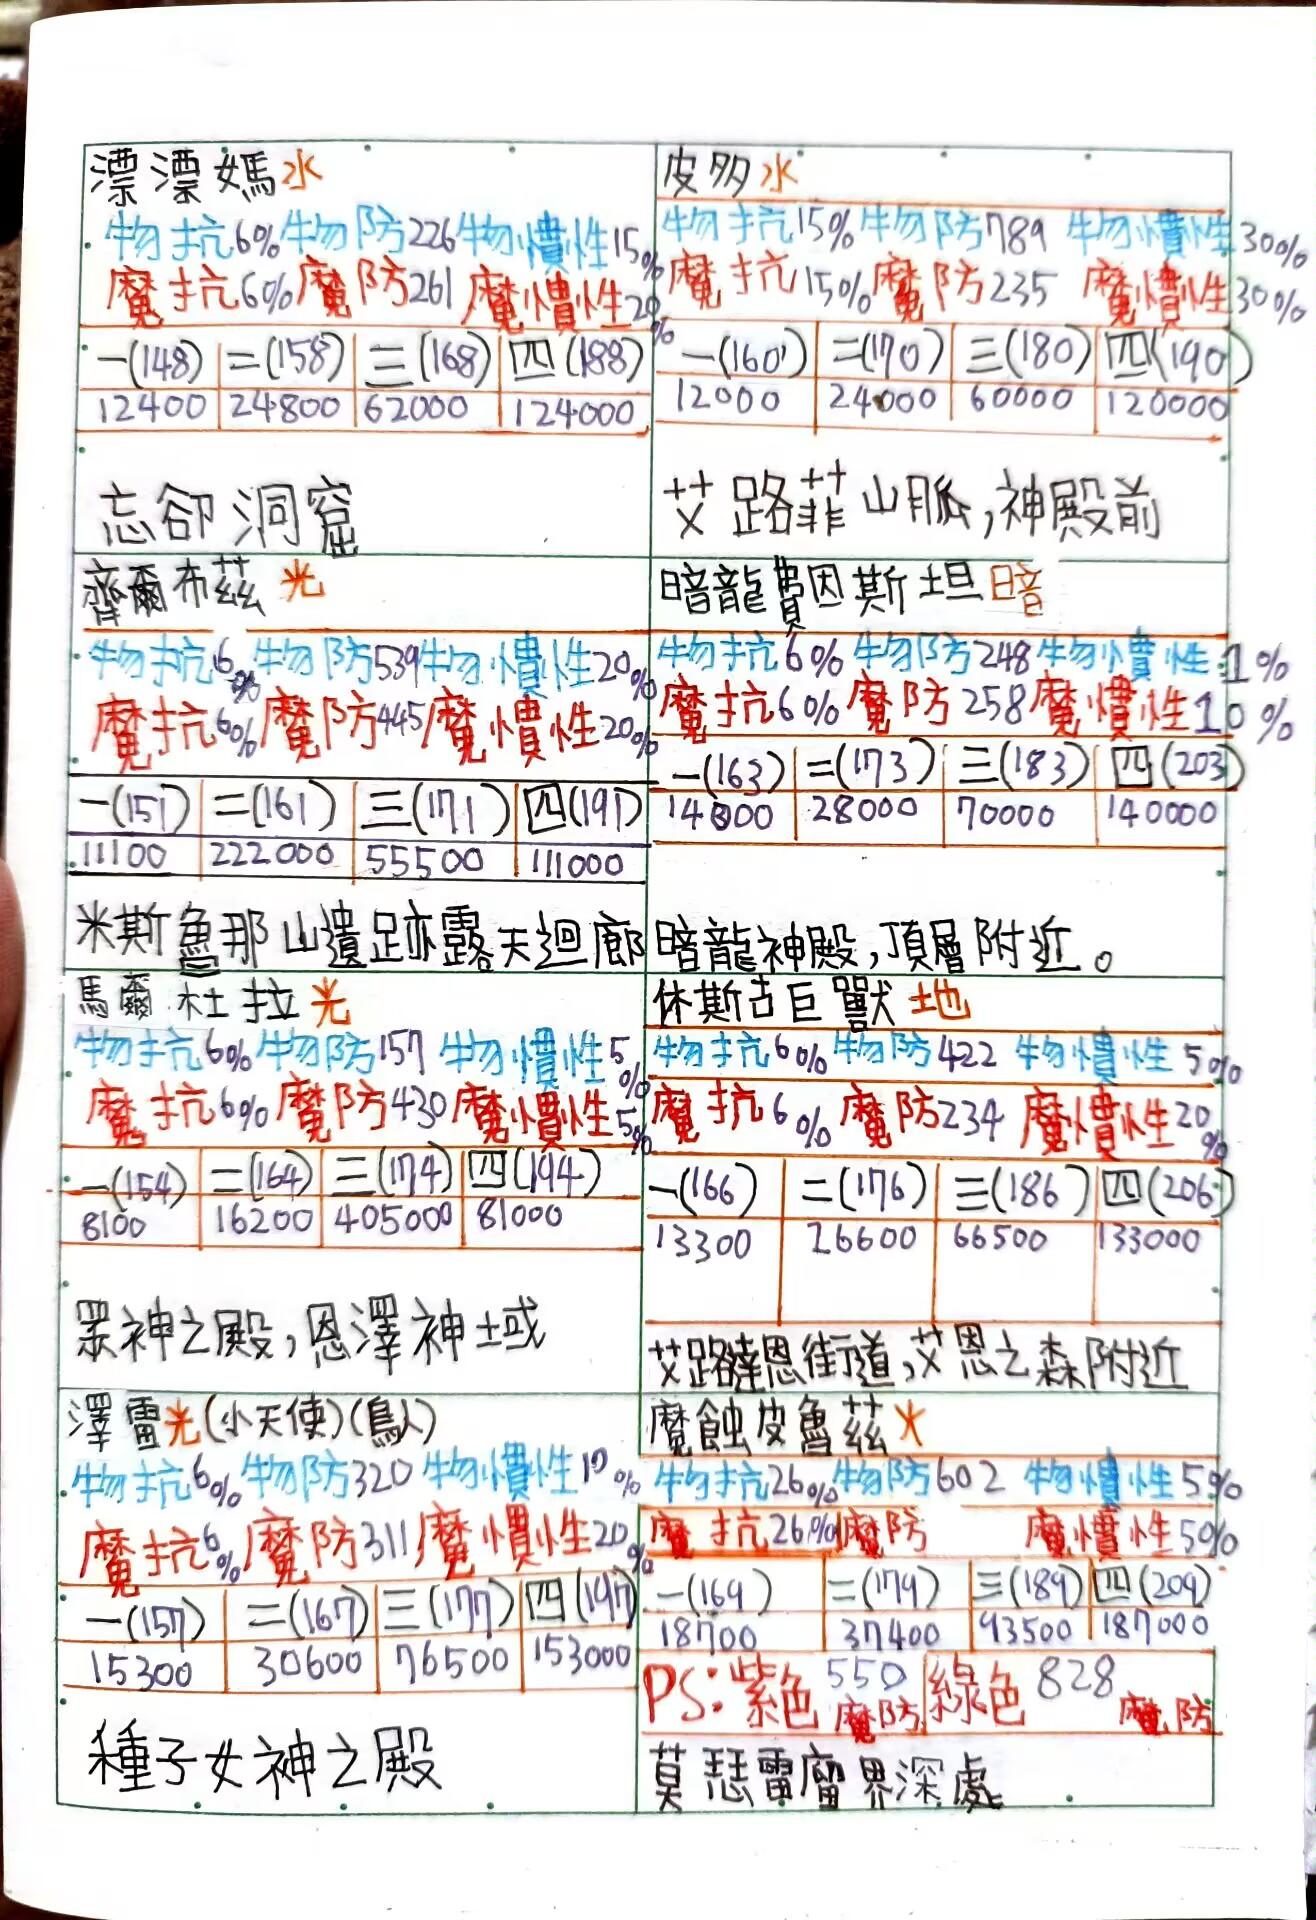 漂漂媽水
物抗6%物防226物慣性15%
魔抗6%魔防261魔慣性20%
一(148) 二(158) 三(168) 四(188)
12400 24800 62000 124000
忘卻洞窟
皮多水
物抗15%物防789 物慣性30%
魔抗15%魔防235 魔慣性30%
一(160) 二(170) 三(180) 四(190)
12000 24000 60000 120000
艾路菲山脈,神殿前
齊爾布茲 光
物抗6%物防539物慣性20%
魔抗6%魔防445魔慣性20%
一(151) 二(161) 三(171) 四(191)
11100 222000 55500 111000
米斯魯那山遺跡露天迴廊
暗龍費因斯坦暗
物抗6%物防248物慣性1%
魔抗6%魔防258魔慣性10%
一(163) 二(173) 三(183) 四(203)
14000 28000 70000 140000
暗龍神殿,頂層附近。
馬爾杜拉光
物抗6%物防157 物慣性5%
魔抗6%魔防430魔慣性5%
一(154) 二(164) 三(174) 四(194)
8100 16200 405000 81000
眾神之殿,恩澤神域
休斯古巨獸 地
物抗6%物防422 物慣性5%
魔抗6%魔防234 魔慣性20%
一(166) 二(176) 三(186) 四(206)
13300 26600 66500 133000
艾路達恩街道,艾恩之森附近
澤雷光(小天使)(鳥人)
物抗6%物防320物慣性10%
魔抗6%魔防311魔慣性20%
一(157) 二(167) 三(177) 四(197)
15300 30600 76500 153000
種子女神之殿
魔蝕皮魯茲火
物抗26%物防602 物慣性5%
魔抗26%魔防 魔慣性50%
一(169) 二(179) 三(189) 四(209)
18700 37400 93500 187000
PS:紫色550魔防 綠色828魔防
莫瑟雷 界深處